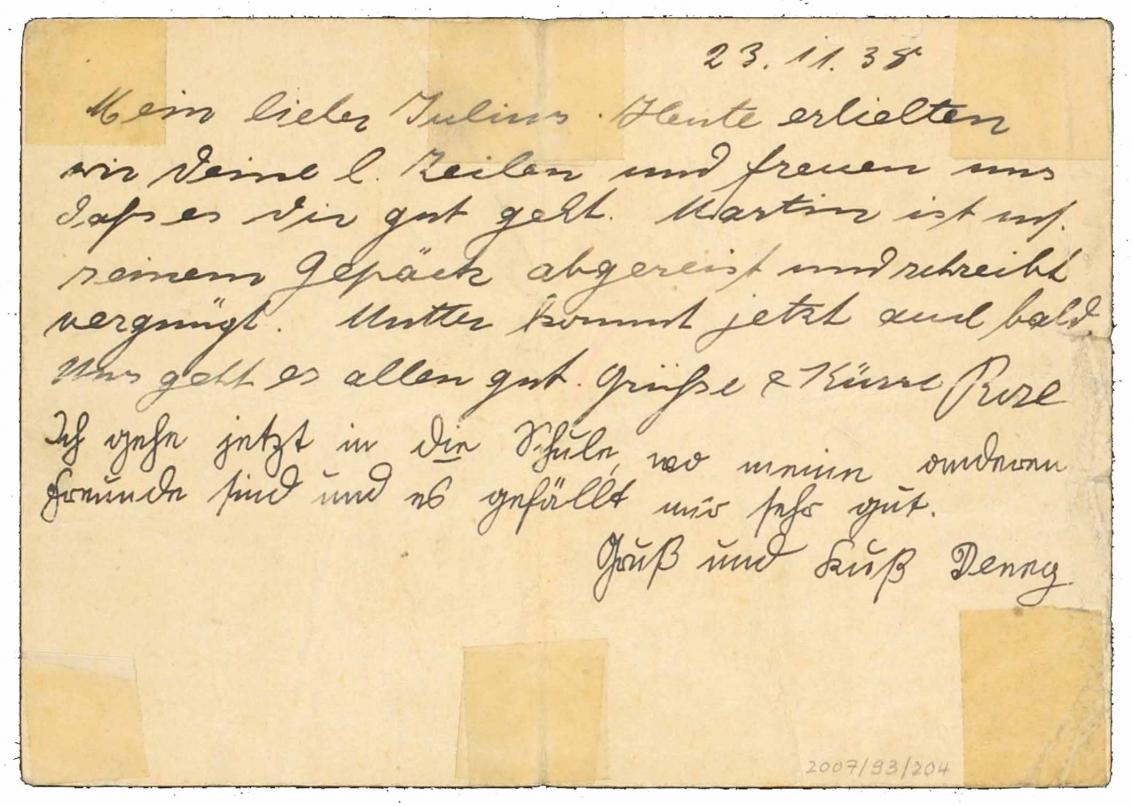 23.11.38
Mein lieber Julius. Heute erhielten
wir Deine l. Zeilen und freuen uns
dass es dir gut geht. Martin ist mit
seinem Gepäck abgereist und schreibt
vergnügt. Mutter kommt jetzt auch bald.
Uns geht es allen gut. Grüsse & Küsse Rose
Ich gehe jetzt in die Schule, wo meine anderen
Freunde sind und es gefällt mir sehr gut.
Gruß und Kuß Denny
2007/93/204